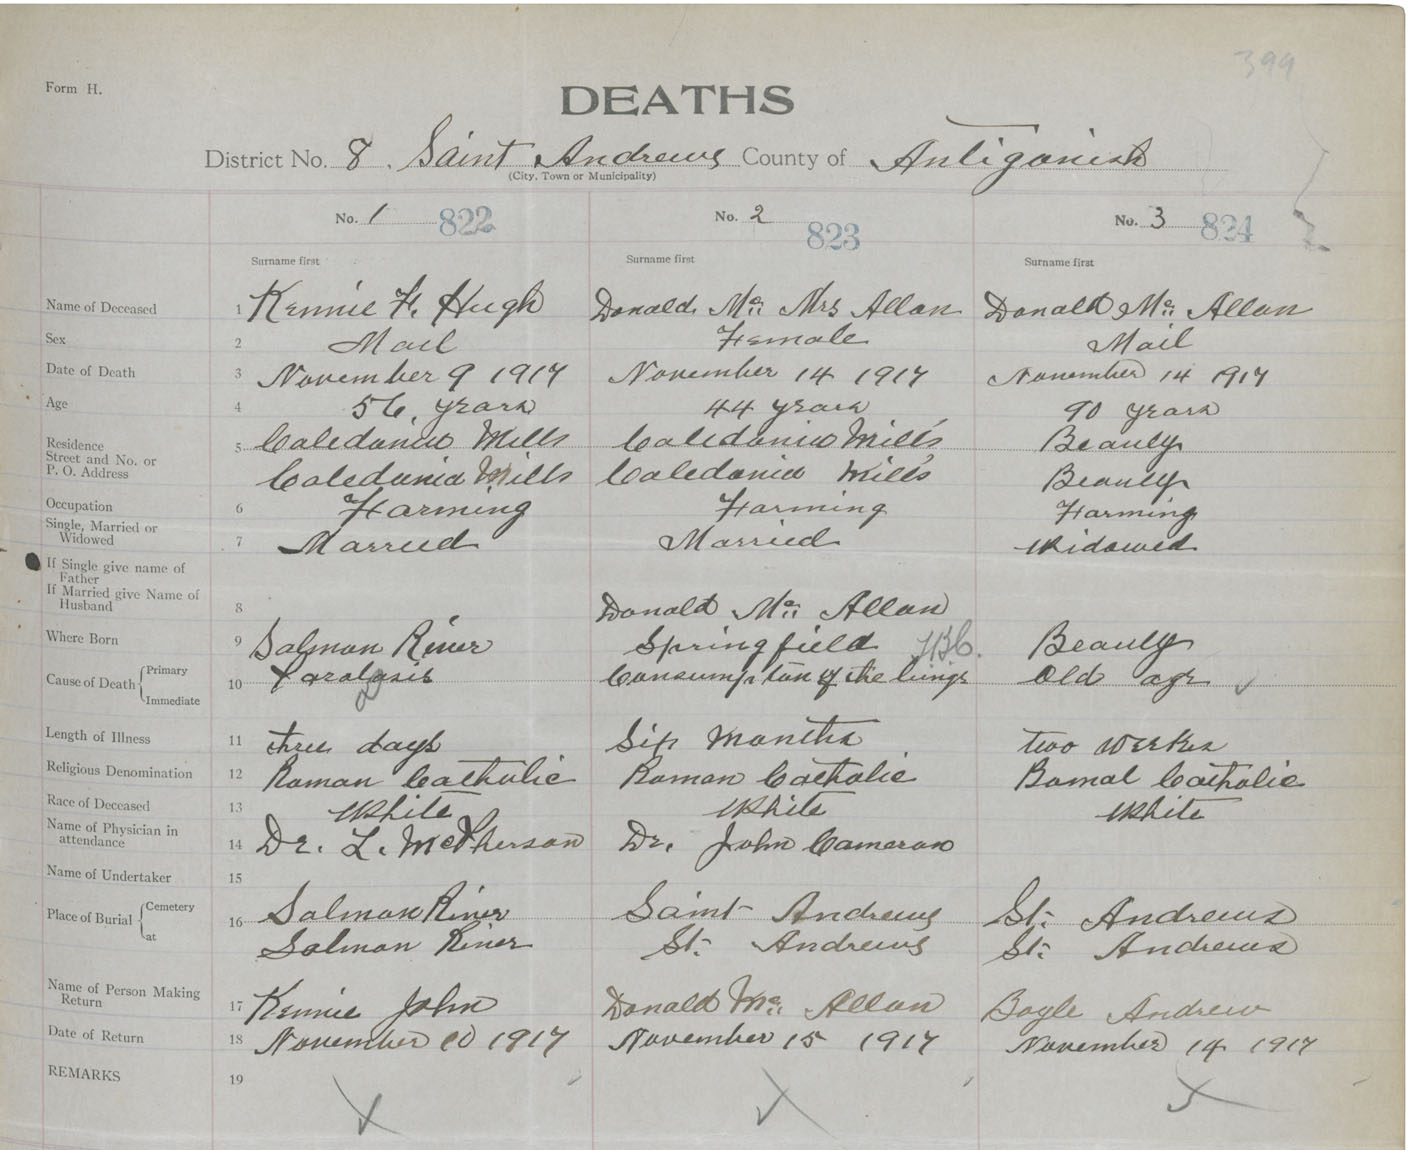 399
Form H.
DEATHS
District No. 8. Saint Andrews County of Antigonish
(City, Town or Municipality)
No. 1 822 No. 2 823 No. 3 824
Surname first Surname first Surname first
Name of Deceased 1 Kennie F. Hugh Donald Mc Mrs Allan Donald Mc Allan
Sex 2 Mail Female Mail
Date of Death 3 November 9 1917 November 14 1917 November 14 1917
Age 4 56 years 44 years 90 years
Residence 5 Caledonia Mills Caledonia Mills Beauly
Street and No. or
P. O. Address Caledonia Mills Caledonia Mills Beauly
Occupation 6 Farming Farming Farming
Single, Married or
Widowed 7 Married Married Widowed
If Single give name of
Father
If Married give Name of
Husband 8 Donald Mc Allan
Where Born 9 Salmon River Springfield Beauly
Cause of Death Primary 10 Paralasis Consumption of the lungs Old age
Immediate
Length of Illness 11 three days Six Months two weeks
Religious Denomination 12 Roman Catholic Roman Catholic Romal Catholic
Race of Deceased 13 White White White
Name of Physician in
attendance 14 Dr. L. McPherson Dr. John Cameron
Name of Undertaker 15
Place of Burial Cemetery 16 Salmon River Saint Andrews St. Andrews
at Salmon River St. Andrews St. Andrews
Name of Person Making
Return 17 Kennie John Donald Mc Allan Boyle Andrew
Date of Return 18 November 10 1917 November 15 1917 November 14 1917
REMARKS 19